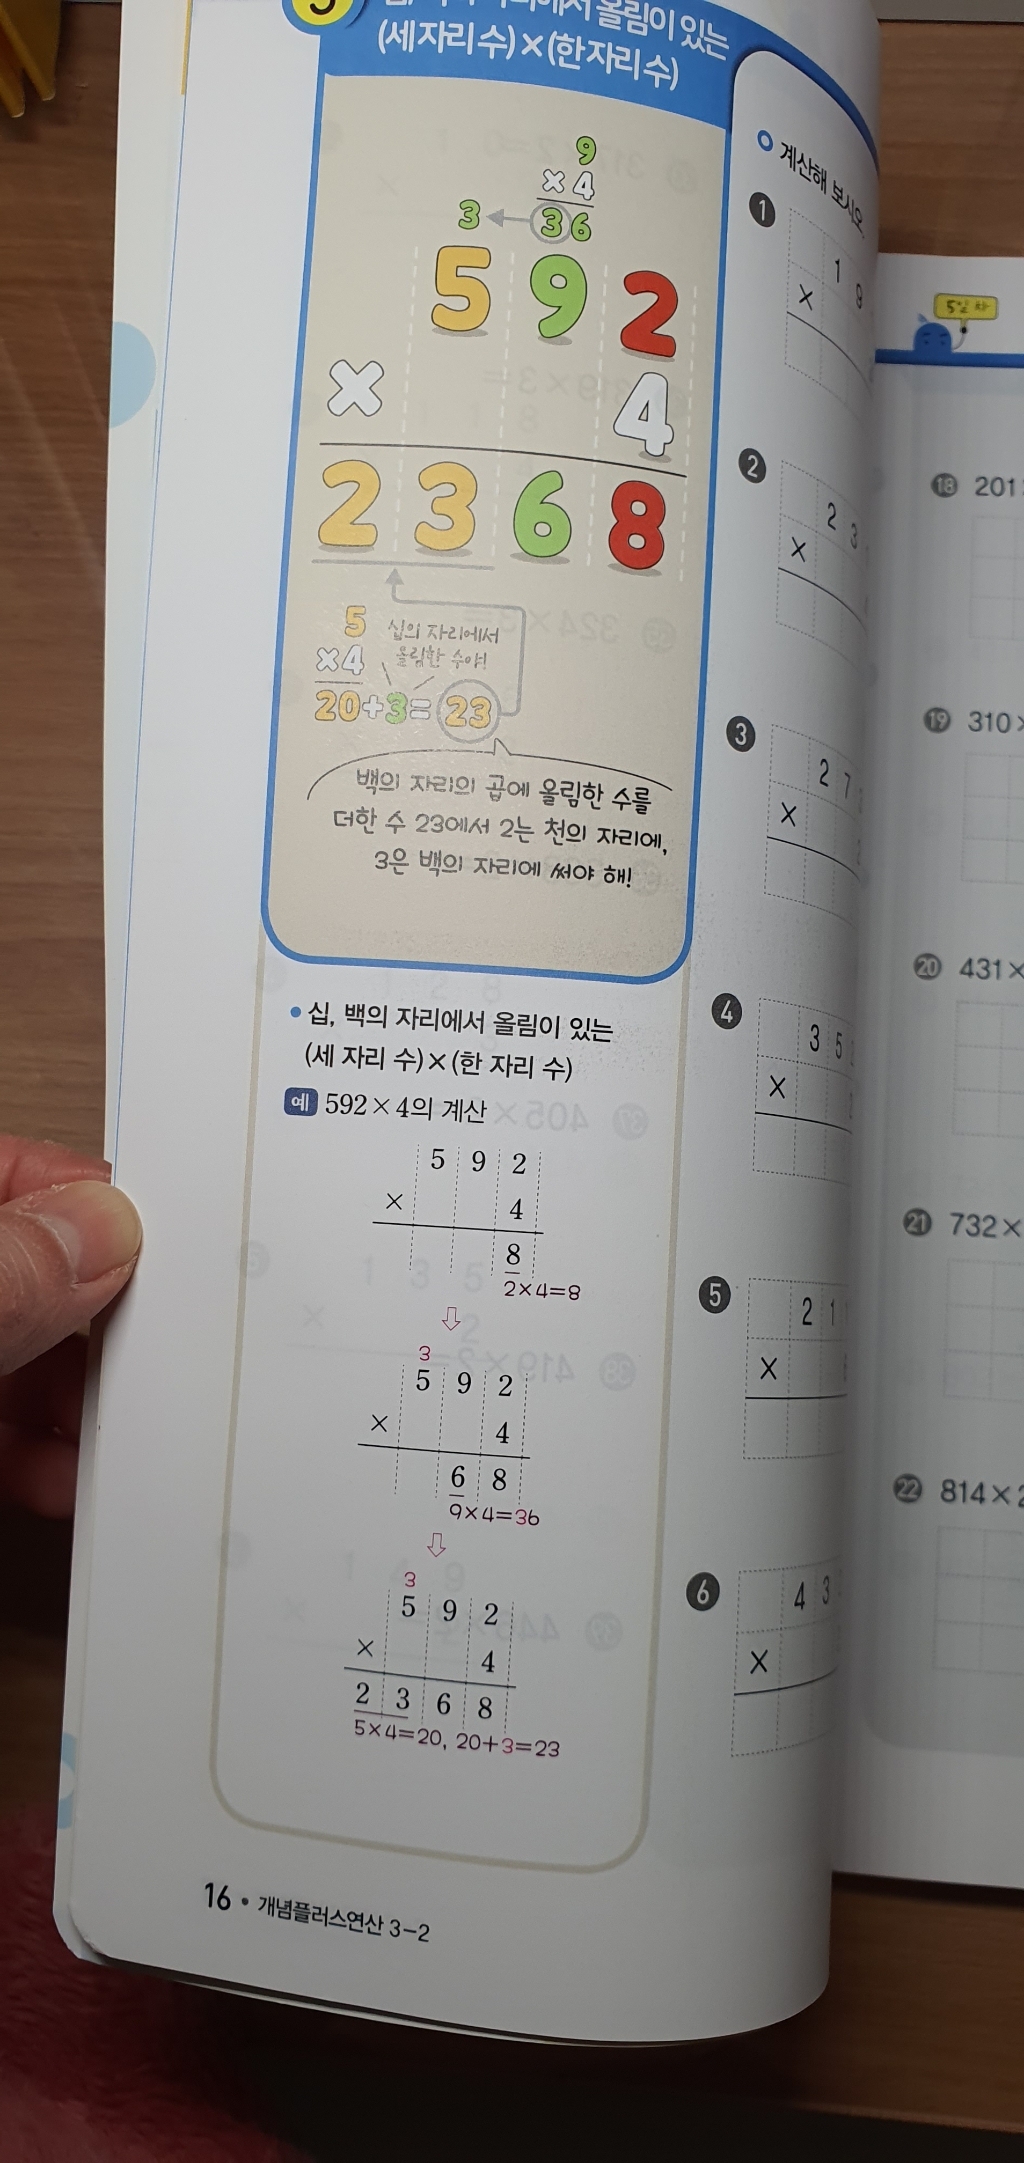 올림이 있는
(세 자리 수)×(한 자리 수)
9
×4
3 36
592
× 4
2368
5 십의 자리에서
×4 올림한 수야!
20+3=23
백의 자리의 곱에 올림한 수를
더한 수 23에서 2는 천의 자리에,
3은 백의 자리에 써야 해!
• 십, 백의 자리에서 올림이 있는
(세 자리 수)×(한 자리 수)
예 592×4의 계산
5 9 2
× 4
8
2×4=8
3
5 9 2
× 4
6 8
9×4=36
3
5 9 2
× 4
2 3 6 8
5×4=20, 20+3=23
16 • 개념플러스연산 3-2
계산해 보시오.
1
1 9
×
2
2 3
×
3
2 7
×
4
3 5
×
5
2 1
×
6
4 3
×
5일 차
18 201
19 310×
20 431×
21 732×
22 814×2